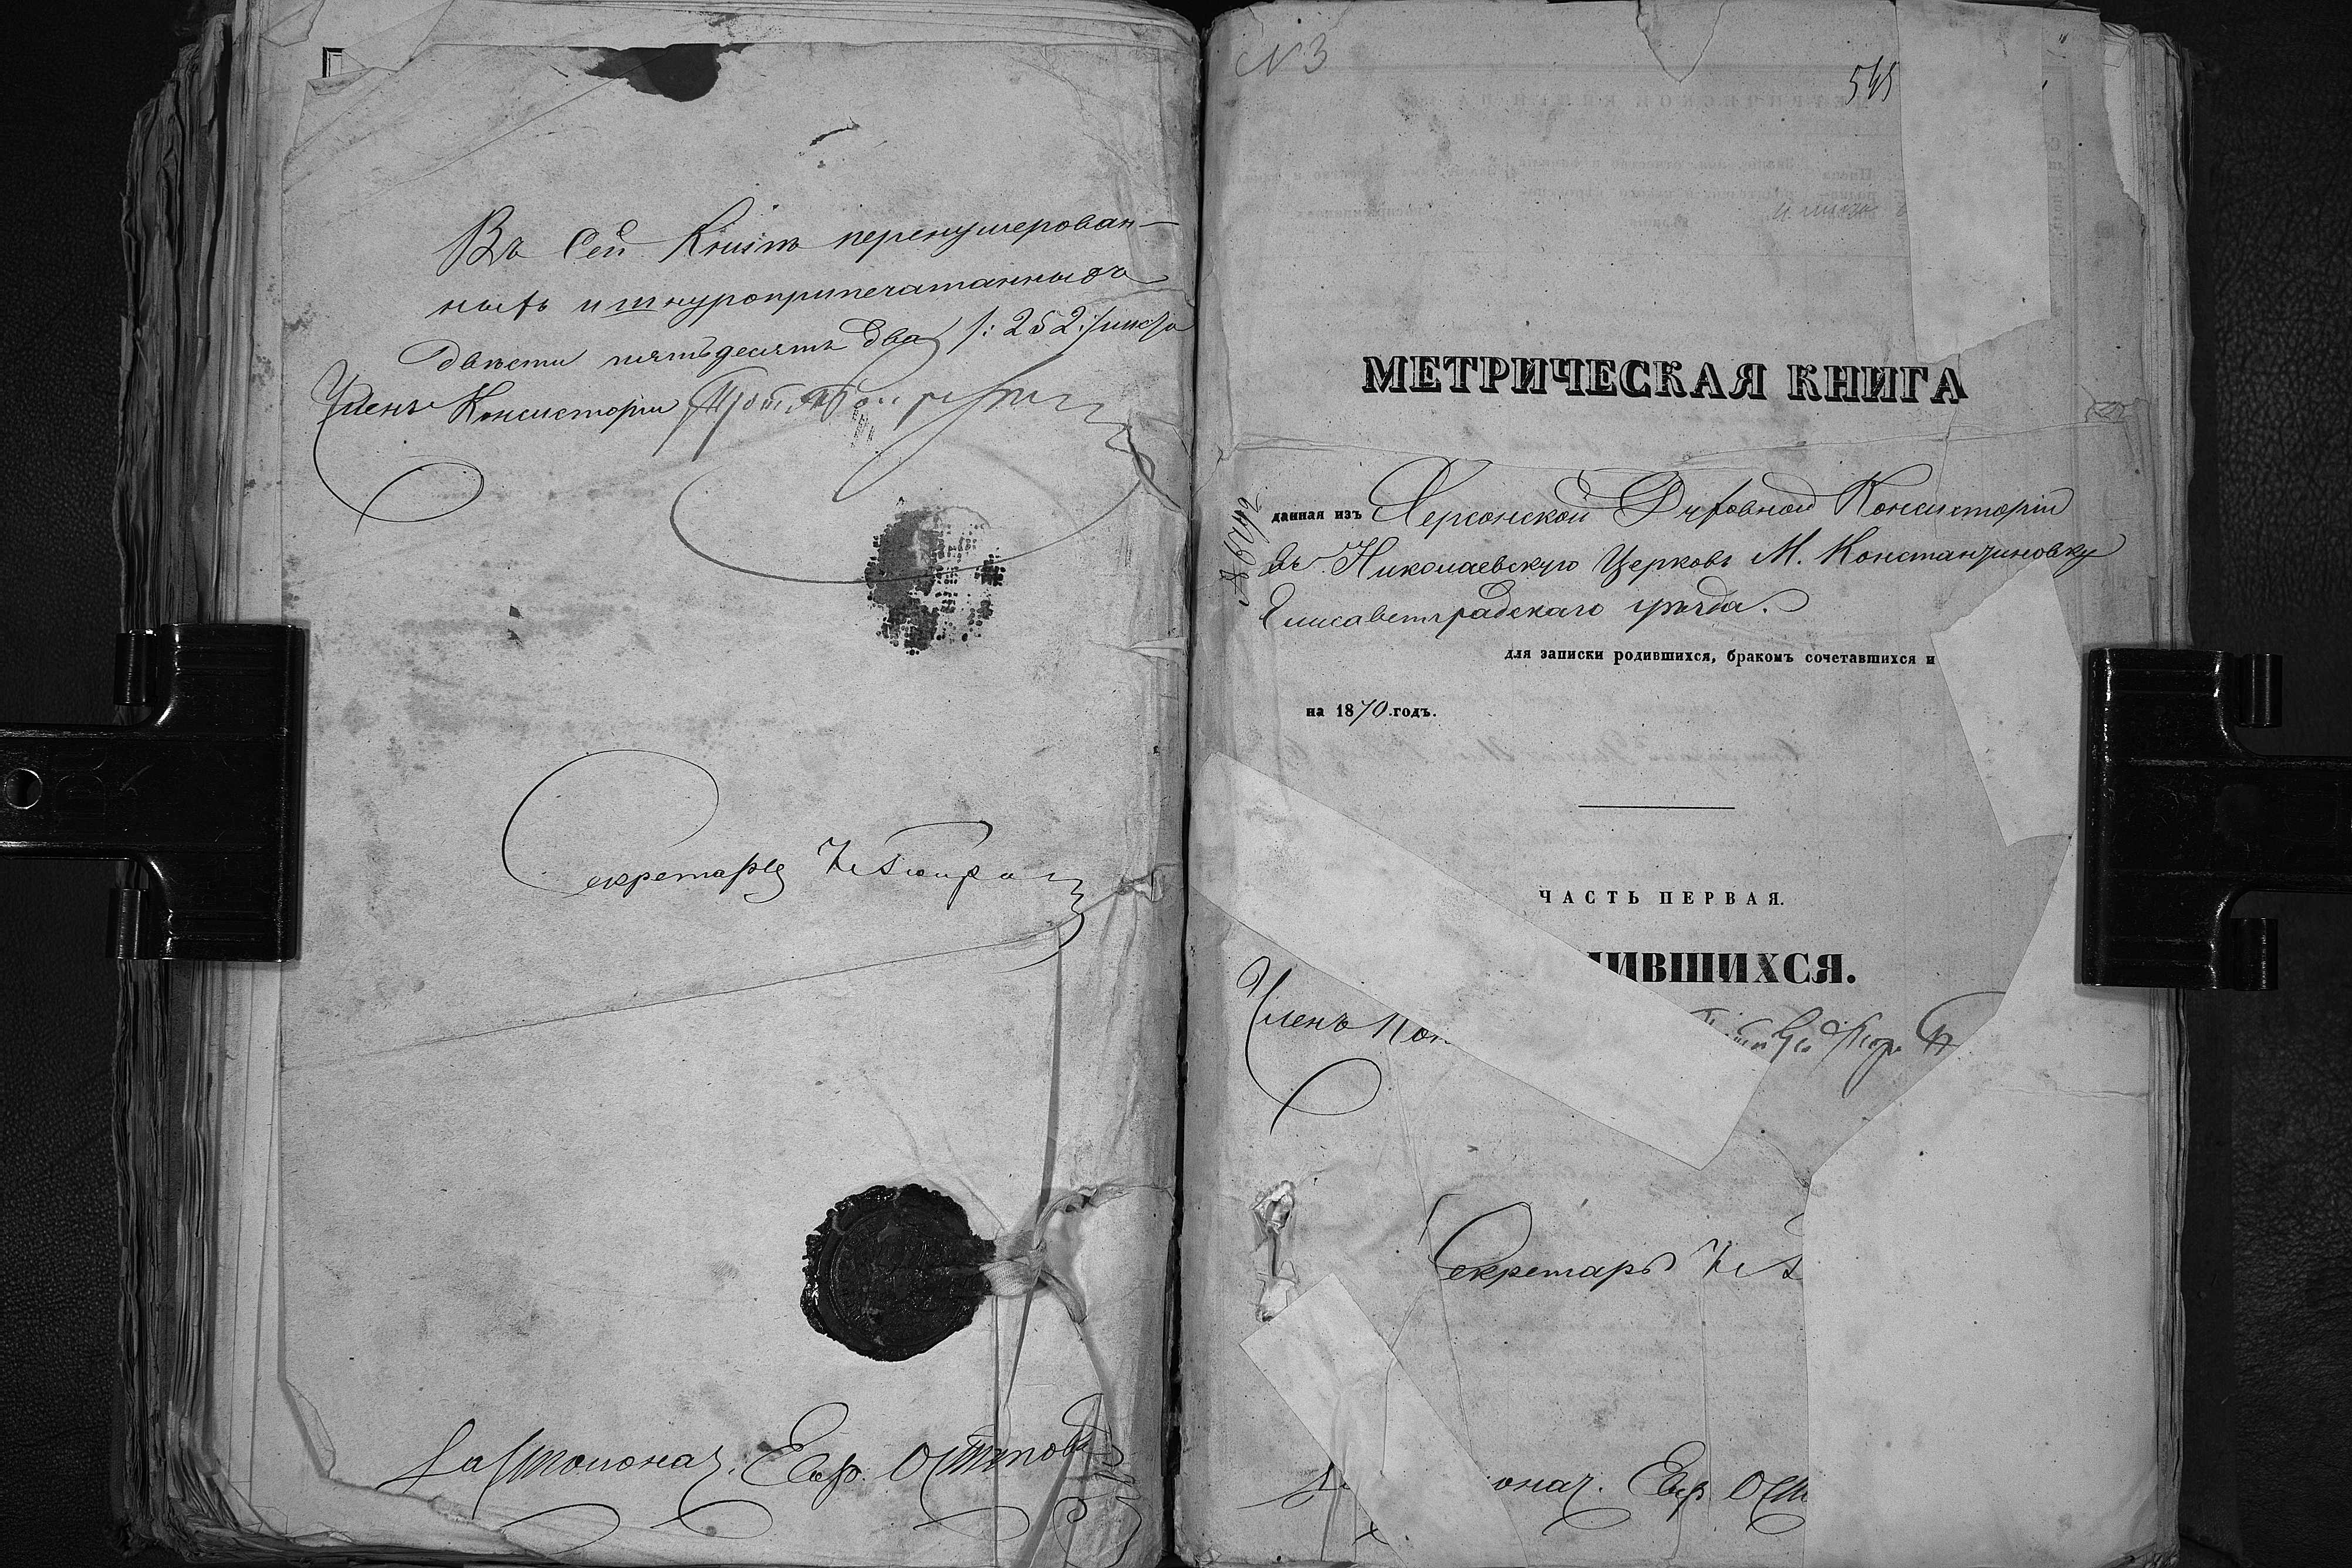 Въ Сей Книгѣ перенумерован-
ныхъ и шнуроприпечатанныхъ
двѣсти пятьдесятъ два /: 252 :/ листа
Членъ Консисторіи
Секретарь
За Столонач. Евф. Остаповъ
N 3
545
МЕТРИЧЕСКАЯ КНИГА
данная изъ Херсонской Духовной Консисторіи
въ Николаевскую Церковь М. Константиновку
Елисаветградскаго уѣзда.
для записки родившихся, бракомъ сочетавшихся и
на 1870 годъ.
ЧАСТЬ ПЕРВАЯ.
ИВШИХСЯ.
Членъ Кон
Секретарь
онач. Евф. Оста